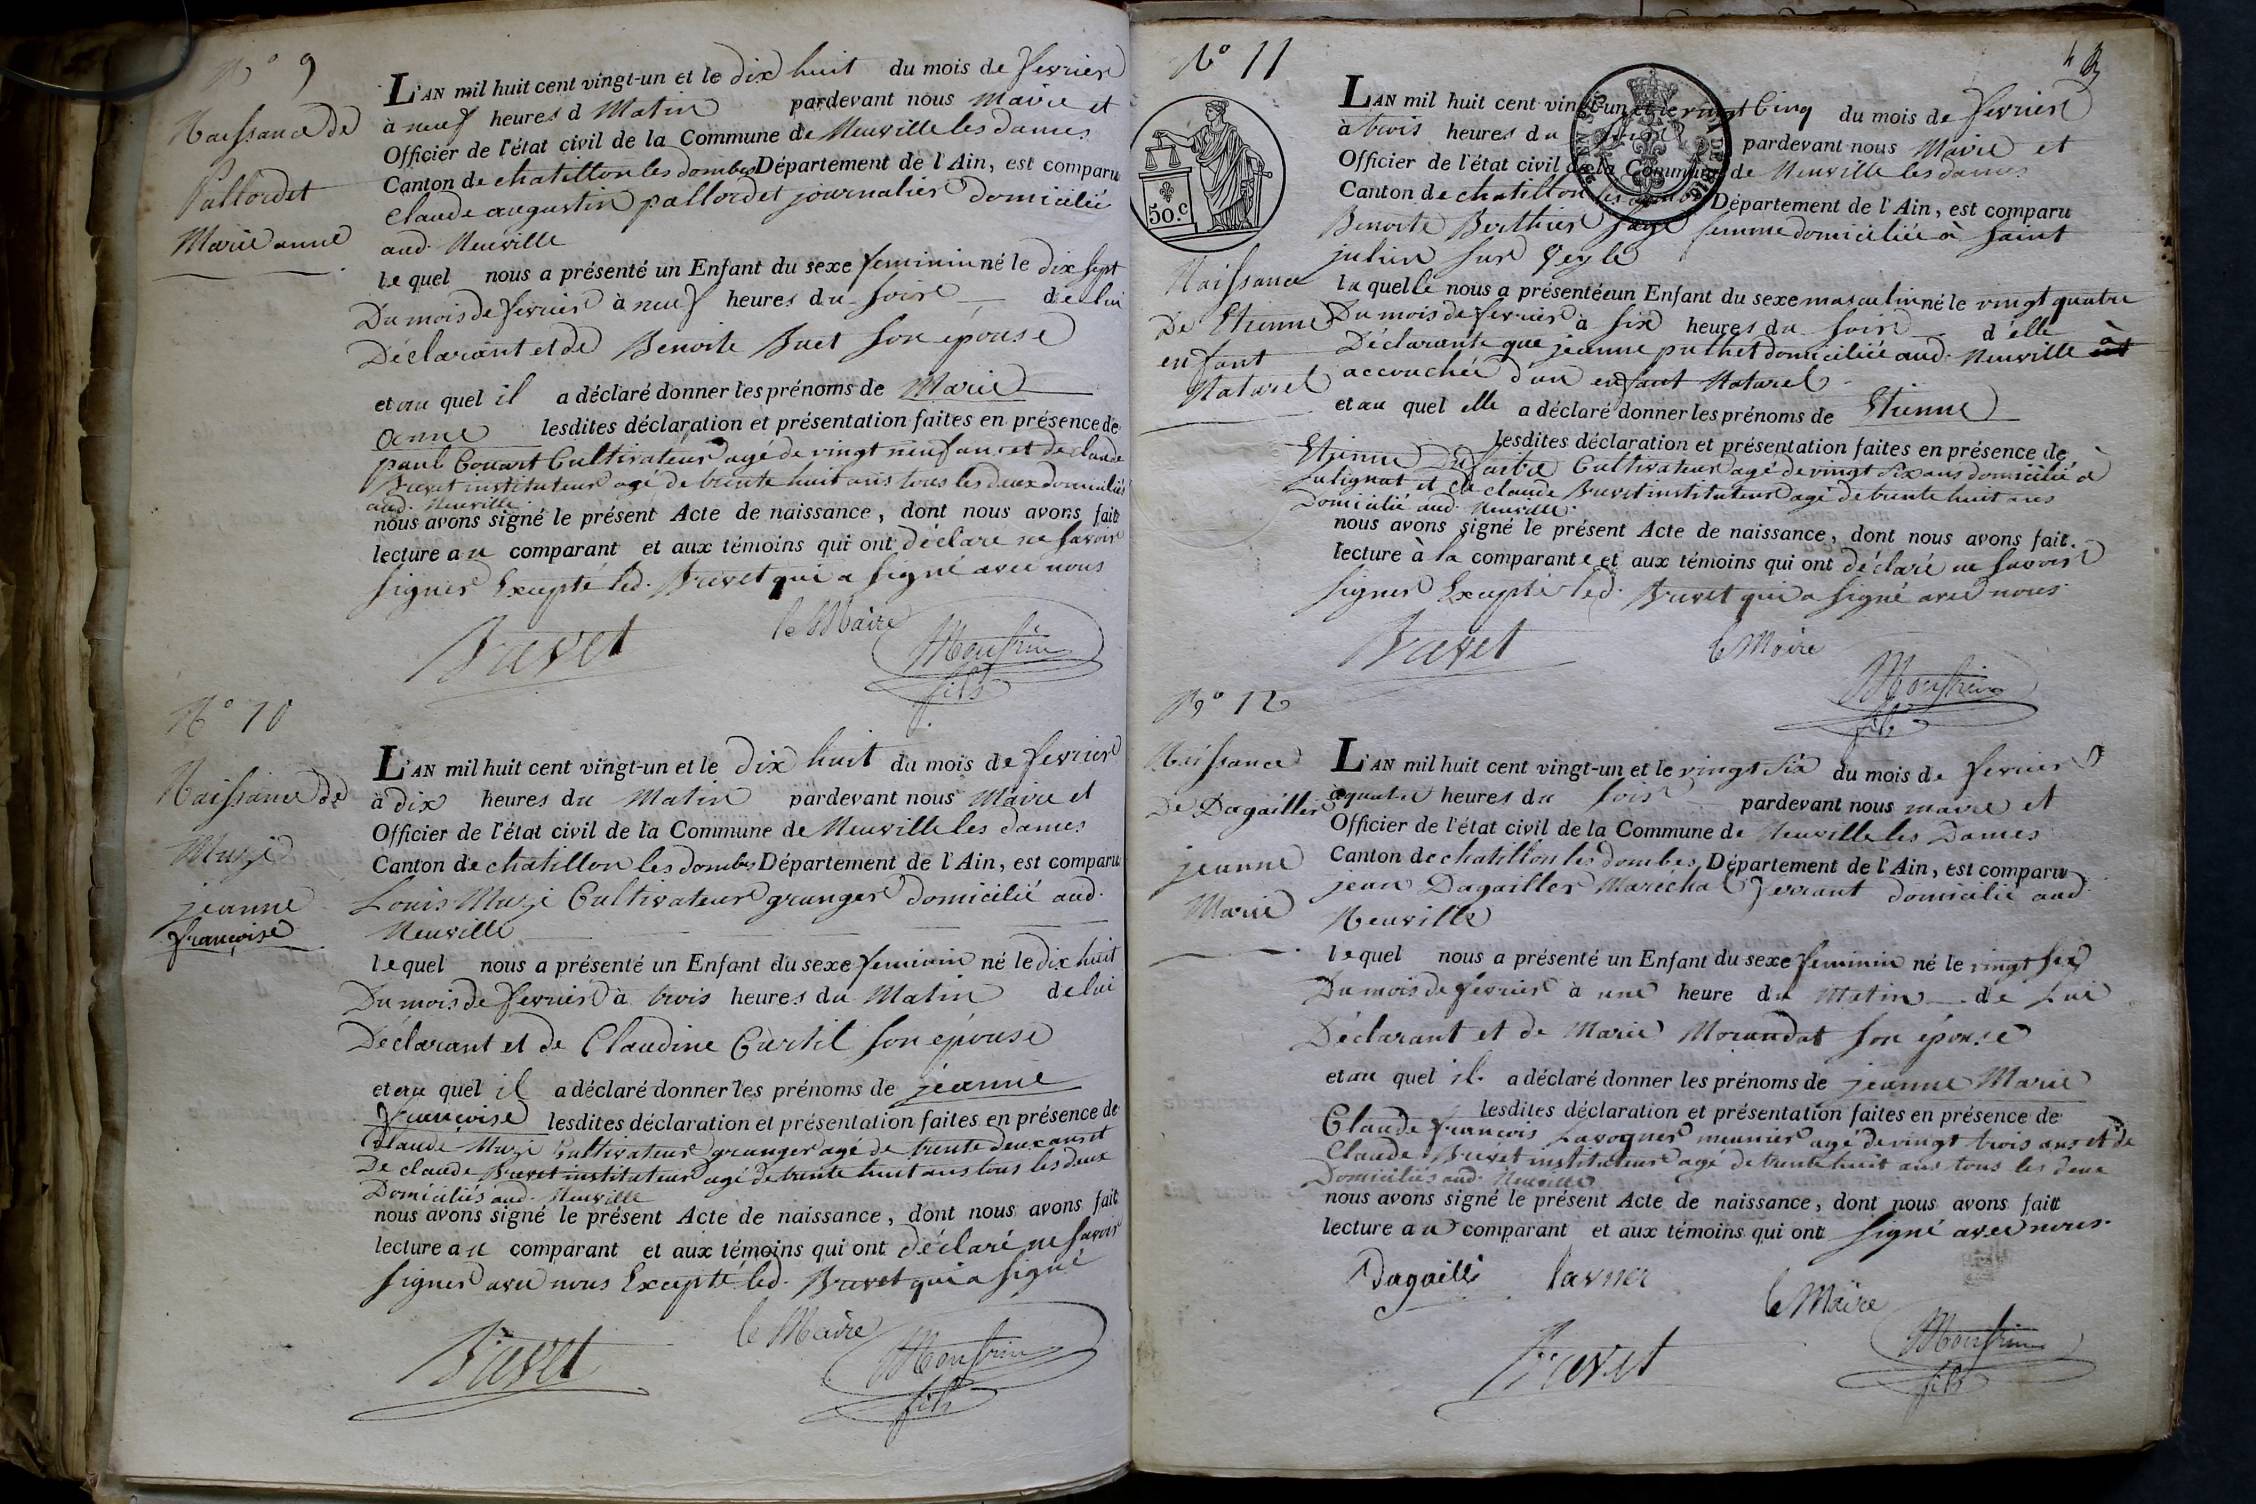 N.° 9
Naissance de
Pallordet
Marie anne
L'AN mil huit cent vingt-un et le dix huit du mois de fevrier
à neuf heures d Matin pardevant nous Maire et
Officier de l'état civil de la Commune de Neuville les dames
Canton de chatillon les dombes Département de l'Ain, est comparu
Claude augustin pallordet journalier domicilié
aud. Neuville
le quel nous a présenté un Enfant du sexe feminin né le dix sept
Du mois de fevrier à neuf heures du soir de lui
Déclarant et de Benoite Buet son épouse
et au quel il a déclaré donner les prénoms de Marie
anne lesdites déclaration et présentation faites en présence de
paul Gouart Cultivateur agé de vingt neuf ans et de claude
Brevet instituteur agé de trente huit ans tous les deux domiciliés
aud. Neuville
nous avons signé le présent Acte de naissance, dont nous avons fait
lecture au comparant et aux témoins qui ont déclaré ne savoir
signer Excepté led. Brevet qui a signé avec nous
Brevet le Maire
Monfrin
fils
N.° 10
Naissance de
Muzi
jeanne
françoise
L'AN mil huit cent vingt-un et le dix huit du mois de fevrier
à dix heures du Matin pardevant nous Maire et
Officier de l'état civil de la Commune de Neuville les dames
Canton de chatillon les dombes Département de l'Ain, est comparu
Louis Muzi Cultivateur granger domicilié aud.
Neuville
le quel nous a présenté un Enfant du sexe feminin né le dix huit
Du mois de fevrier à trois heures du Matin de lui
Déclarant et de Claudine Curtil son épouse
et au quel il a déclaré donner les prénoms de jeanne
françoise lesdites déclaration et présentation faites en présence de
Claude Muzi Cultivateur granger agé de trente deux ans et
De claude Brevet instituteur agé de trente huit ans tous les deux
Domiciliés aud. Neuville
nous avons signé le présent Acte de naissance, dont nous avons fait
lecture au comparant et aux témoins qui ont déclaré ne savoir
signer avec nous Excepté led. Brevet qui a signé
Brevet le Maire
Monfrin
fils
N° 11
50.c
Naissance
De Etienne
enfant
Naturel
L'AN mil huit cent vingt-un et le vingt Cinq du mois de fevrier
à trois heures du soir pardevant nous Maire et
Officier de l'état civil de la Commune de Neuville les dames
Canton de chatillon les dombes Département de l'Ain, est comparu
Benoite Berthier sage femme domiciliée à saint
julien sur Veyle
la quelle nous a présentée un Enfant du sexe masculin né le vingt quatre
Du mois de fevrier à six heures du soir d'elle
Déclarante que jeanne puthet domiciliée aud. Neuville est à
accouchée d'un enfant Naturel
et au quel elle a déclaré donner les prénoms de Etienne
lesdites déclaration et présentation faites en présence de
Etienne Dufaitre Cultivateur agé de vingt six ans domicilié à
sulignat et de claude Brevet instituteur agé de trente huit ans
Domicilié aud. Neuville.
nous avons signé le présent Acte de naissance, dont nous avons fait
lecture à la comparante et aux témoins qui ont déclaré ne savoir
signer Excepté led. Brevet qui a signé avec nous
Brevet le Maire
Monfrin
fils
N° 12
Naissance
De Dagailler
jeanne
Marie
L'AN mil huit cent vingt-un et le vingt six du mois de fevrier
à quatre heures du soir pardevant nous maire et
Officier de l'état civil de la Commune de Neuville les Dames
Canton de chatillon les dombes Département de l'Ain, est comparu
jean Dagailler Maréchal ferrant domicilié aud.
Neuville
le quel nous a présenté un Enfant du sexe feminin né le vingt six
Du mois de fevrier à une heure du Matin de Lui
Déclarant et de Marie Morandat son épouse
et au quel il a déclaré donner les prénoms de jeanne Marie
lesdites déclaration et présentation faites en présence de
Claude françois Lavogner meunier agé de vingt trois ans et de
Claude Brevet instituteur agé de trente huit ans tous les deux
Domiciliés aud. Neuville
nous avons signé le présent Acte de naissance, dont nous avons fait
lecture au comparant et aux témoins qui ont signé avec nous.
Dagaille lavner le Maire
Brevet Monfrin
fils